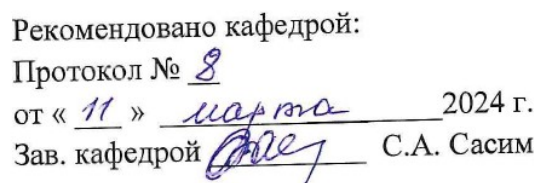 Рекомендовано кафедрой:
Протокол № 8
от « 11 » марта 2024 г.
Зав. кафедрой С.А. Сасим